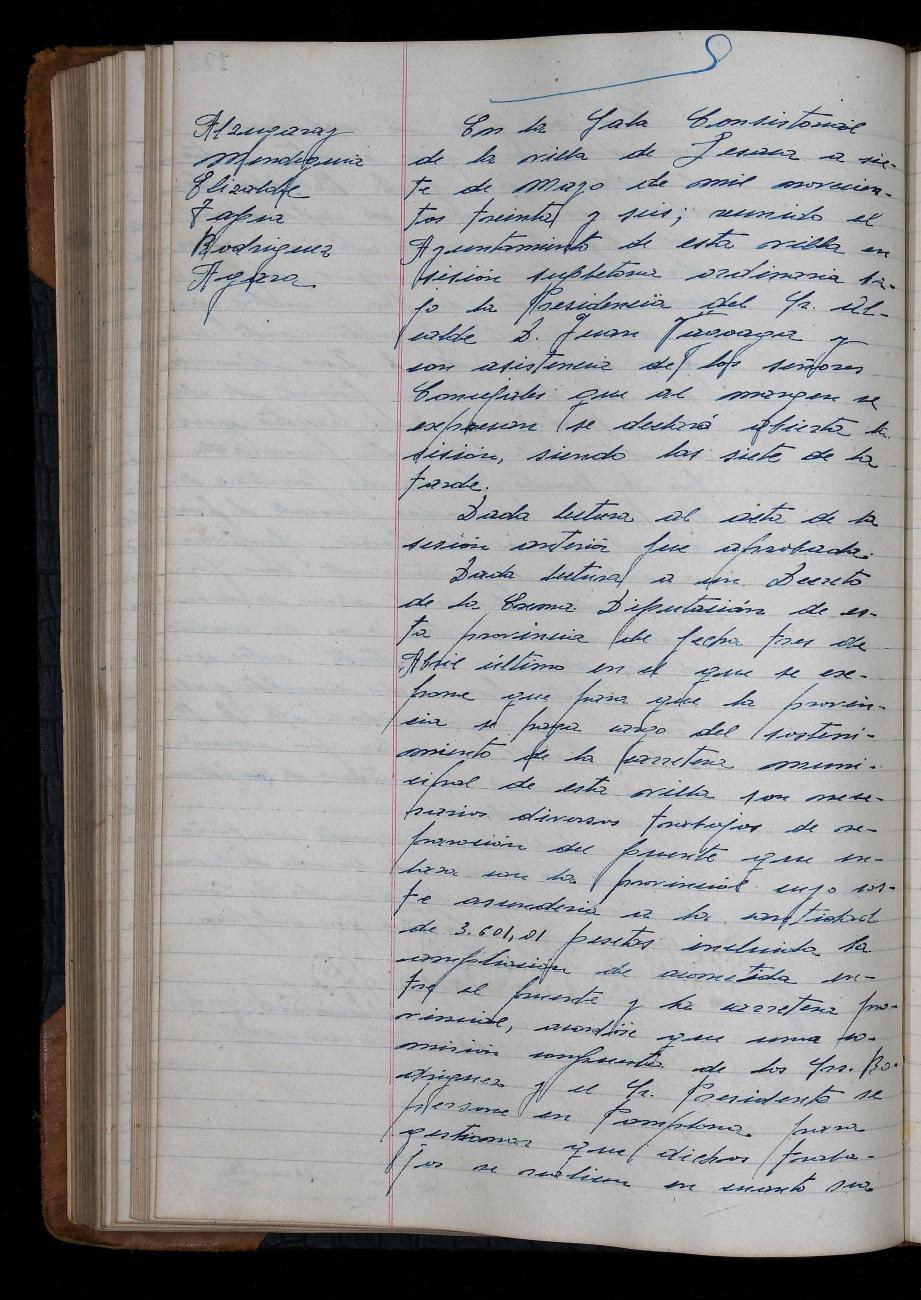 Alzugaray
Mendiguia
Elizalde
Tapia
Rodriguez
Ayera
En la Sala Consistorial
de la villa de Lesaca a sie-
te de Mayo de mil novecien-
tos treinta y seis; reunido el
Ayuntamiento de esta villa en
sesión supletoria ordinaria ba-
jo la Presidencia del Sr. Al-
calde D. Juan
con asistencia de los señores
Concejales que al margen se
expresan se declaró abierta la
sesión, siendo las siete de la
tarde.
Dada lectura al acta de la
sesión anterior fue aprobada.
Dada lectura a un Decreto
de la Excma Diputación de es-
ta provincia de fecha tres de
Abril último en el que se ex-
pone que para que la provin-
cia se haga cargo del sosteni-
miento de la carretera muni-
cipal de esta villa son nece-
sarios diversos trabajos de re-
paración del puente que en-
laza con la provincial cuyo cos-
te ascendería a la cantidad
de 3.601,01 pesetas incluida la
ampliación de acometida en-
tre el puente y la carretera pro-
vincial, acordóse que una co-
misión compuesta de los Srs. Ro-
driguez y el Sr. Presidente se
persone en Pamplona para
gestionar que dichos traba-
jos se realicen en cuanto sea